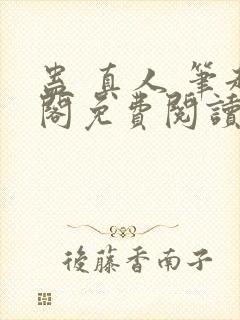 蛊真人 筆趣
閣免費閱讀
後藤香南子